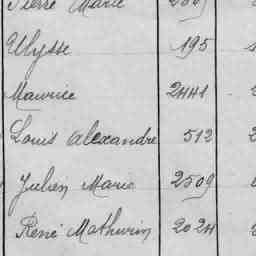 Pierre Marie
Ulysse 195
Maurice 2441
Louis Alexandre 512
Julien Marie 2509
René Mathurin 2024